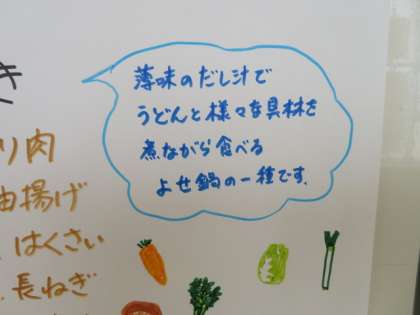 き
り肉
油揚げ
はくさい
長ねぎ
薄味のだし汁で
うどんと様々な具材を
煮ながら食べる
よせ鍋の一種です。